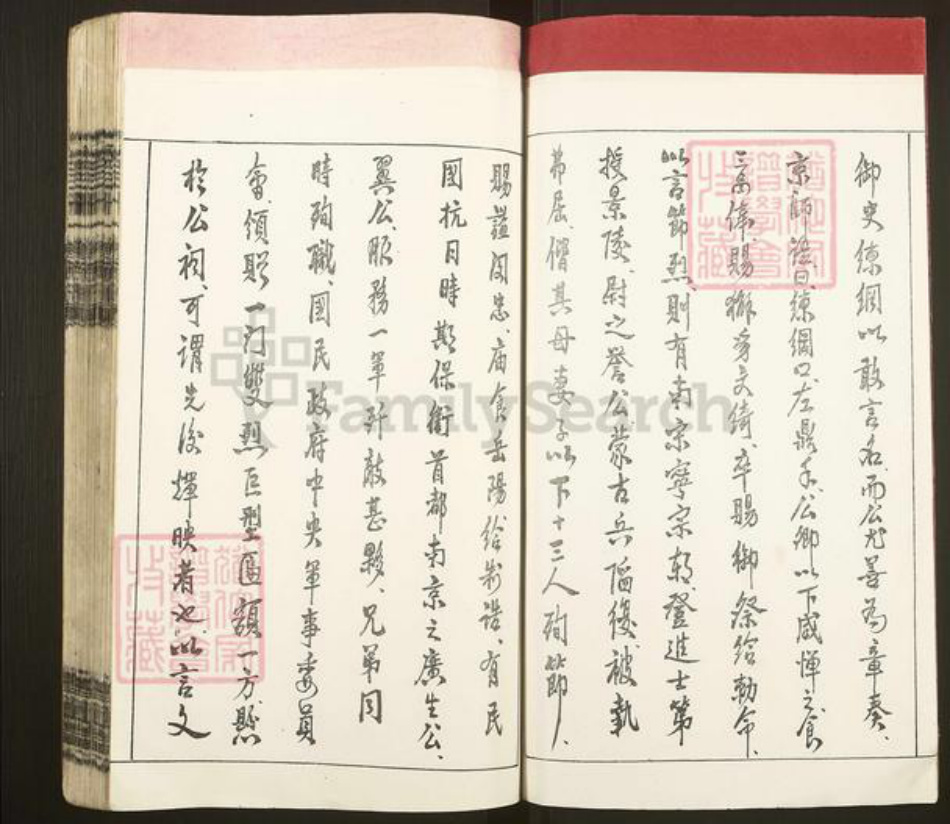 御史練綱以敢言名而公尤善為章奏、
京師謠曰練綱口左鼎手公卿以下咸憚之食
三品俸、賜獬豸文綺、卒賜御祭給勅命、
以言節烈、則有南宋寧宗朝、登進士第
授景陵尉之譽公、蒙古兵陷後、被執
弗屈、偕其母妻子以下十三人殉節、
賜諡閔忠、庙食岳陽給制誥、有民
國抗日時期保衛首都南京之廣生公、
翼公、服務一軍歼敵甚夥、兄弟同
時殉職、國民政府中央軍事委員
會、頒贈一门雙烈巨型匾額一方懸
於公祠、可謂先後輝映者也、以言文
FamilySearch
收藏